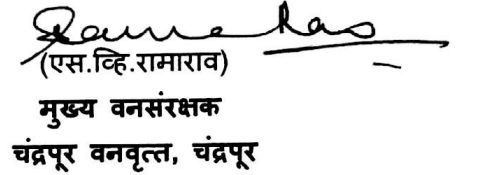 Rama Rao
(एस.व्हि.रामाराव)
मुख्य वनसंरक्षक
चंद्रपूर वनवृत्त, चंद्रपूर